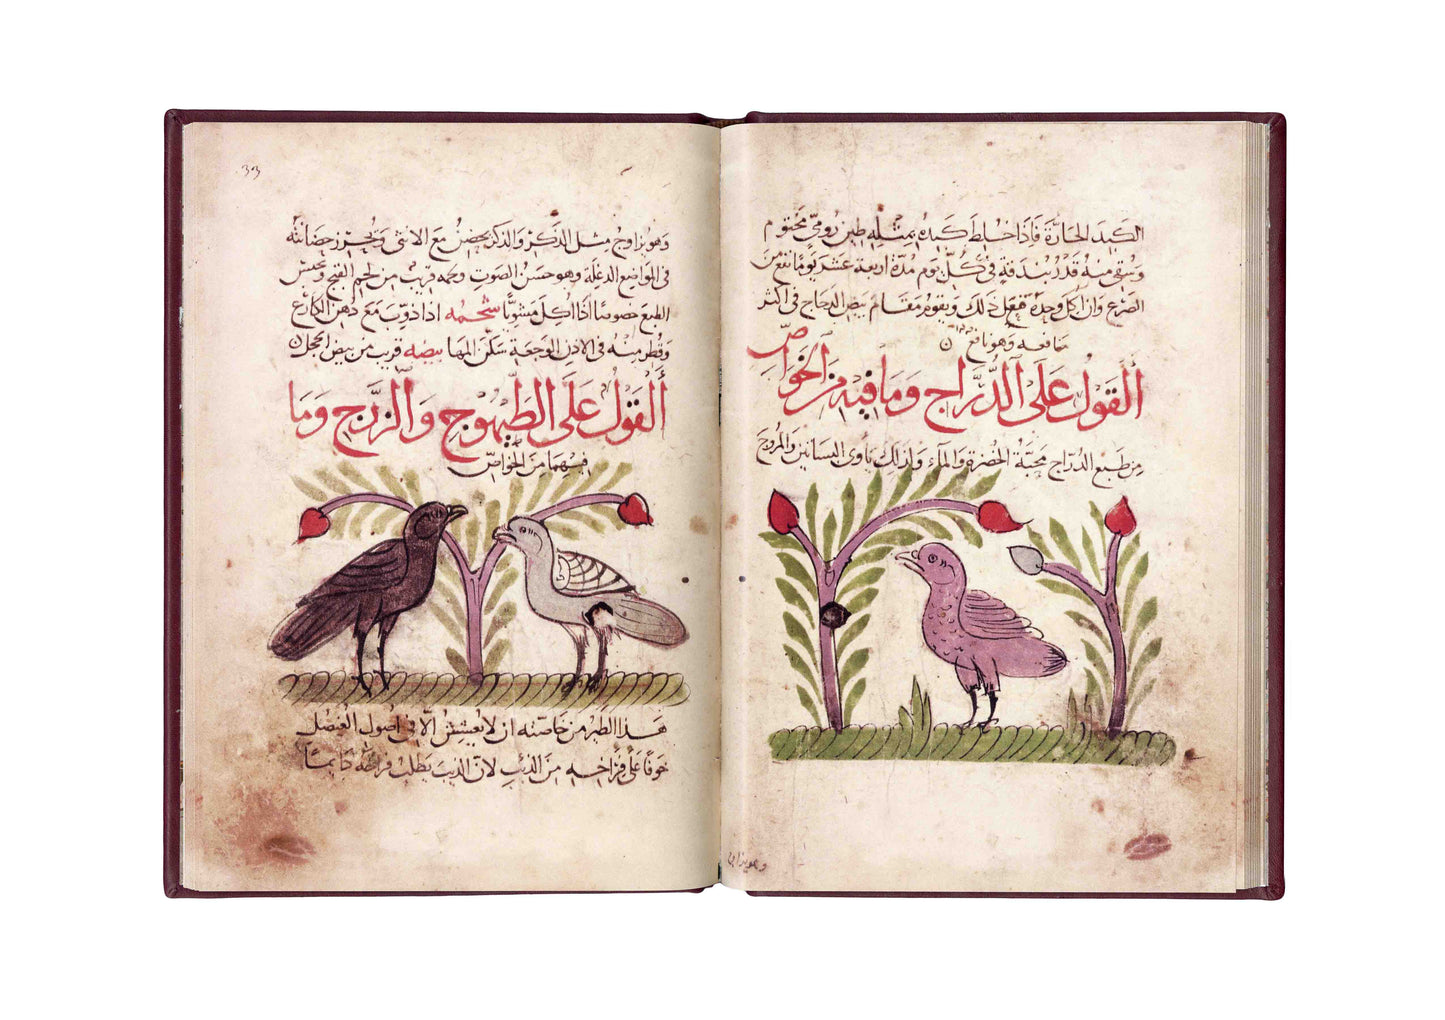 الكبد الحارة فاذا خلط كبده بمثله طين رومي مختوم
وسقي منه قدر بندقة في كل يوم مدة اربعة عشر يوما نفع من
الصرع وان اكل وحده فعل ذلك ويقوم مقام بيض الدجاج في اكثر
منافعه وهو نافع
القول على الدراج وما فيه من الخواص
من طبع الدراج محبة الخضرة والماء ولذلك يأوى البساتين والمروج
وهو يزاوج
33
وهو يزاوج مثل الذكر والذكر يحضن مع الانثى وتحرز حضانته
فى المواضع الدغلة وهو حسن الصوت ولحمه قريب من لحم القبج ويحبس
الطبع خصوصا اذا اكل مشويا شحمه اذا ذوب مع دهن الكارع
وقطر منه في الاذن الوجعة سكن المها بيضه قريب من بيض الحجل
القول على الطيهوج والزرج وما
فيهما من الخواص
هذا الطير من خاصته ان لا يعشش الا في اصول العنصل
خوفا على فراخه من الذئب لان الذيب يطلب فراخه دائما